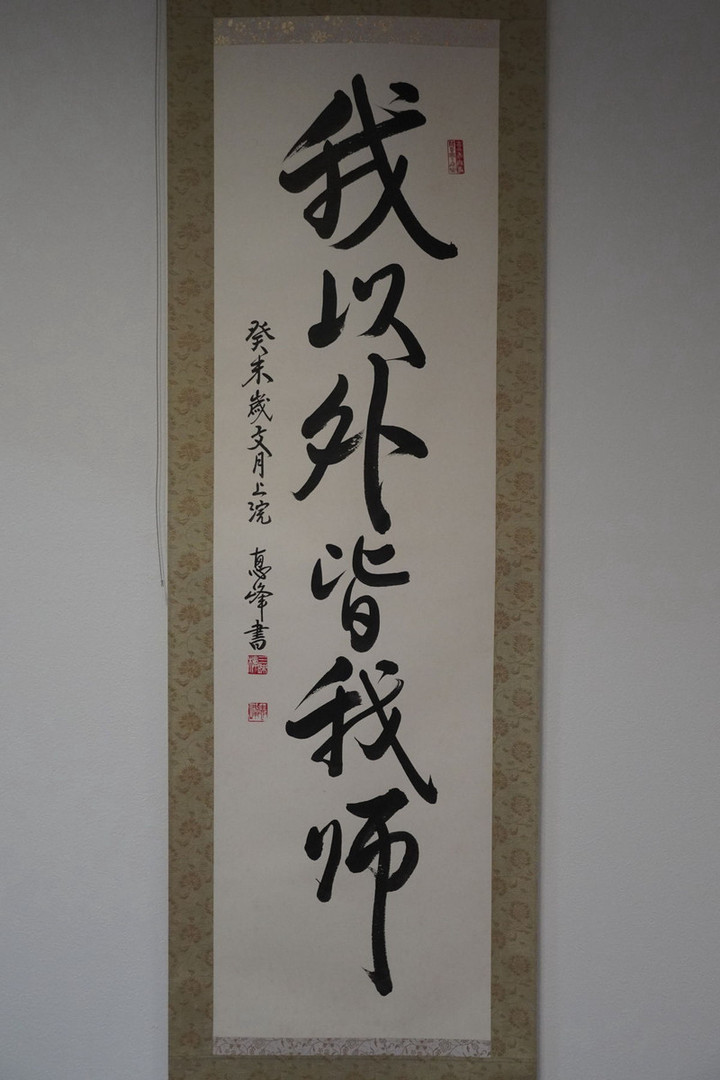 我以外皆我师
癸未歳文月上浣　恵峰書